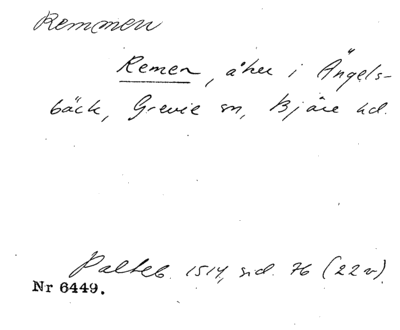 Remmen
Remen, åker i Ängels-
bäck, Grevie sn, Bjäre hd.
Palteb. 1514, sid. 76 (22v)
Nr 6449.